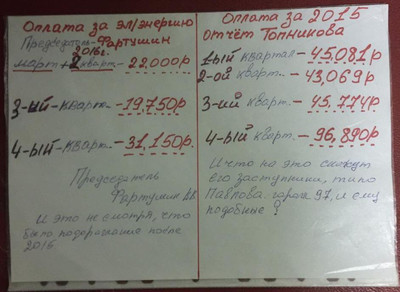 Оплата за эл/энергию
Председатель-Фартушин
2016г.
март + 2 кварт. - 22,000р
3-ий-кварт.-19,750р
4-ый-кварт.-31,150р.
Председатель
Фартушин АВ.
И это не смотря, что
было подорожание после
2015
Оплата за 2015
отчёт Топникова
1ый квартал - 45,081р
2-ой кварт. - 43,069р
3-ий кварт. - 45,774р
4-ый кварт. - 96,890р
И что на это скажут
его заступники, типо
Павлова: гараж 97, и ему
подобные?